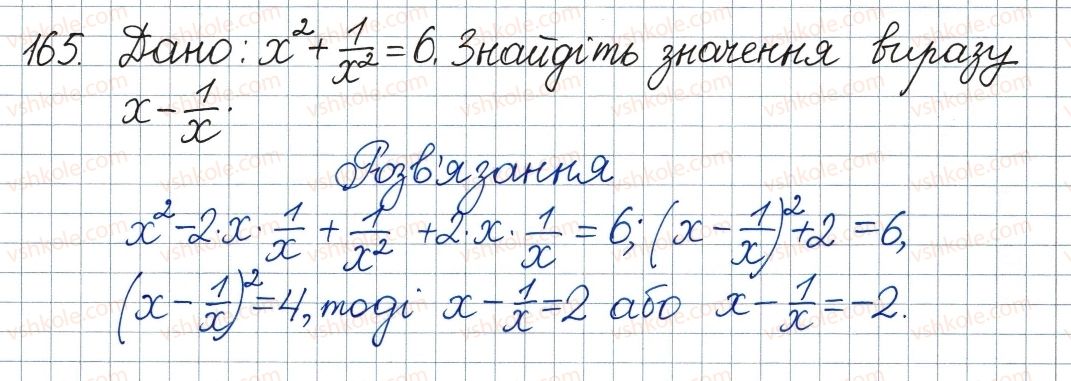 165. Дано: x² + 1/x² = 6. Знайдіть значення виразу
x − 1/x.
Розв'язання
x² − 2·x·1/x + 1/x² + 2·x·1/x = 6; (x − 1/x)² + 2 = 6,
(x − 1/x)² = 4, тоді x − 1/x = 2 або x − 1/x = −2.